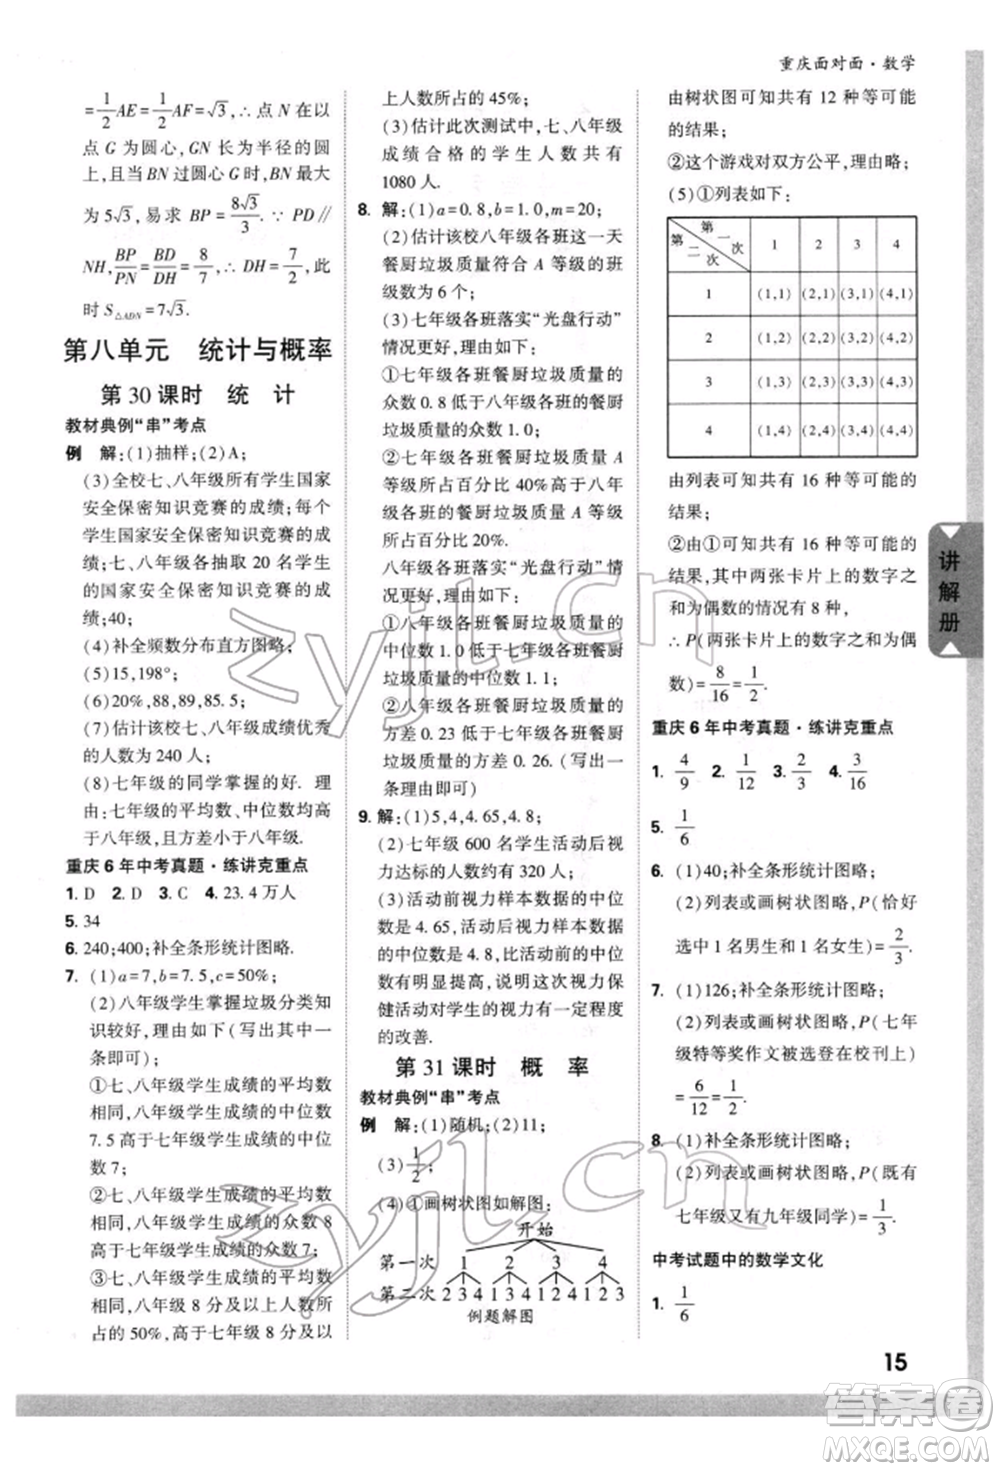 重庆面对面·数学
=1/2AE=1/2AF=√3,∴点 N 在以
点 G 为圆心,GN 长为半径的圆
上,当 BN 过圆心 G 时,BN 最大
为 5√3,易求 BP=8√3/3.∵PD∥
NH,BP/PN=BD/DH=8/7,∴DH=7/2,此
时 S△ADN=7√3.
第八单元 统计与概率
第 30 课时 统 计
教材典例“串”考点
例 解:(1)抽样;(2)A;
(3)全校七、八年级所有学生国家
安全保密知识竞赛的成绩;每个
学生国家安全保密知识竞赛的成
绩;七、八年级各抽取 20 名学生
国家安全保密知识竞赛的成
绩;40;
(4)补全频数分布直方图略;
(5)15,198°;
(6)20%,88,89,85.5;
(7)估计该校七、八年级成绩优秀
的人数为 240 人;
(8)七年级的同学掌握的好. 理
由:七年级的平均数、中位数均高
于八年级,且方差小于八年级.
重庆 6 年中考真题·练讲克重点
1. D 2. D 3. C 4. 23.4 万人
5. 34
6. 240;400;补全条形统计图略.
7. (1)a=7,b=7.5,c=50%;
(2)八年级学生掌握垃圾分类知
识较好,理由如下(写出其中一
条即可):
①七、八年级学生成绩的平均数
相同,八年级学生成绩的中位数
7.5 高于七年级学生成绩的中位
数 7;
②七、八年级学生成绩的平均数
相同,八年级学生成绩的众数 8
高于七年级学生成绩的众数 7;
③七、八年级学生成绩的平均数
相同,八年级 8 分及以上人数所
占的 50%,高于七年级 8 分及以
上人数所占的 45%;
(3)估计此次测试中,七、八年级
成绩合格的学生人数共有
1080 人.
8. 解:(1)a=0.8,b=1.0,m=20;
(2)估计该校八年级各班这一天
餐厨垃圾质量符合 A 等级的班
级数为 6 个;
(3)七年级各班落实“光盘行动”
情况更好,理由如下:
①七年级各班餐厨垃圾质量的
众数 0.8 低于八年级各班的餐厨
垃圾质量的众数 1.0;
②七年级各班餐厨垃圾质量 A
等级所占百分比 40%高于八年
级各班的餐厨垃圾质量 A 等级
所占百分比 20%.
八年级各班落实“光盘行动”情
况更好,理由如下:
①八年级各班餐厨垃圾质量的
中位数 1.0 低于七年级各班餐厨
垃圾质量的中位数 1.1;
②八年级各班餐厨垃圾质量的
方差 0.23 低于七年级各班餐厨
垃圾质量的方差 0.26.(写出其中
一条理由即可)
9. 解:(1)5,4,4.65,4.8;
(2)七年级 600 名学生活动后视
力达标的人数约有 320 人;
(3)活动前视力样本数据的中位
数是 4.65,活动后视力样本数据
的中位数是 4.8,比较活动前后
的中位数,活动后的中位数有明
显提高,说明该校学生开展视力保
健活动对学生的视力有一定程度
的改善.
第 31 课时 概 率
教材典例“串”考点
例 解:(1)随机;(2)11;
(3)1/2;
(4)①画树状图如解图:
开始
第一次 1 2 3 4
第二次 2 3 4 1 3 4 1 2 4 1 2 3
例题解图
由树状图可知共有 12 种等可能
的结果;
②这个游戏对双方公平,理由略;
(5)①列表如下:
第一次 第二次 1 2 3 4
1 (1,1) (2,1) (3,1) (4,1)
2 (1,2) (2,2) (3,2) (4,2)
3 (1,3) (2,3) (3,3) (4,3)
4 (1,4) (2,4) (3,4) (4,4)
由列表可知共有 16 种等可能的
结果;
②由①可知共有 16 种等可能的结
果,其中两张卡片上的数字之
和为偶数的情况有 8 种,
∴P(两张卡片上的数字之和为偶
数)=8/16=1/2.
重庆 6 年中考真题·练讲克重点
1. 4/9 2. 1/12 3. 2/3 4. 3/16
5. 1/6
6. (1)40;补全条形统计图略;
(2)列表或画树状图略,P(恰好
选中 1 名男生和 1 名女生)=2/3.
7. (1)126;补全条形统计图略;
(2)列表或画树状图略,P(七年
级特等奖作文被选登在校刊上)
=6/12=1/2.
8. (1)补全条形统计图略;
(2)列表或画树状图略,P(既有
七年级又有九年级同学)=1/3.
中考试题中的数学文化
1. 1/6
讲解册
15
zyjl.cn
zyjl.cn
答案圈
MXQE.COM